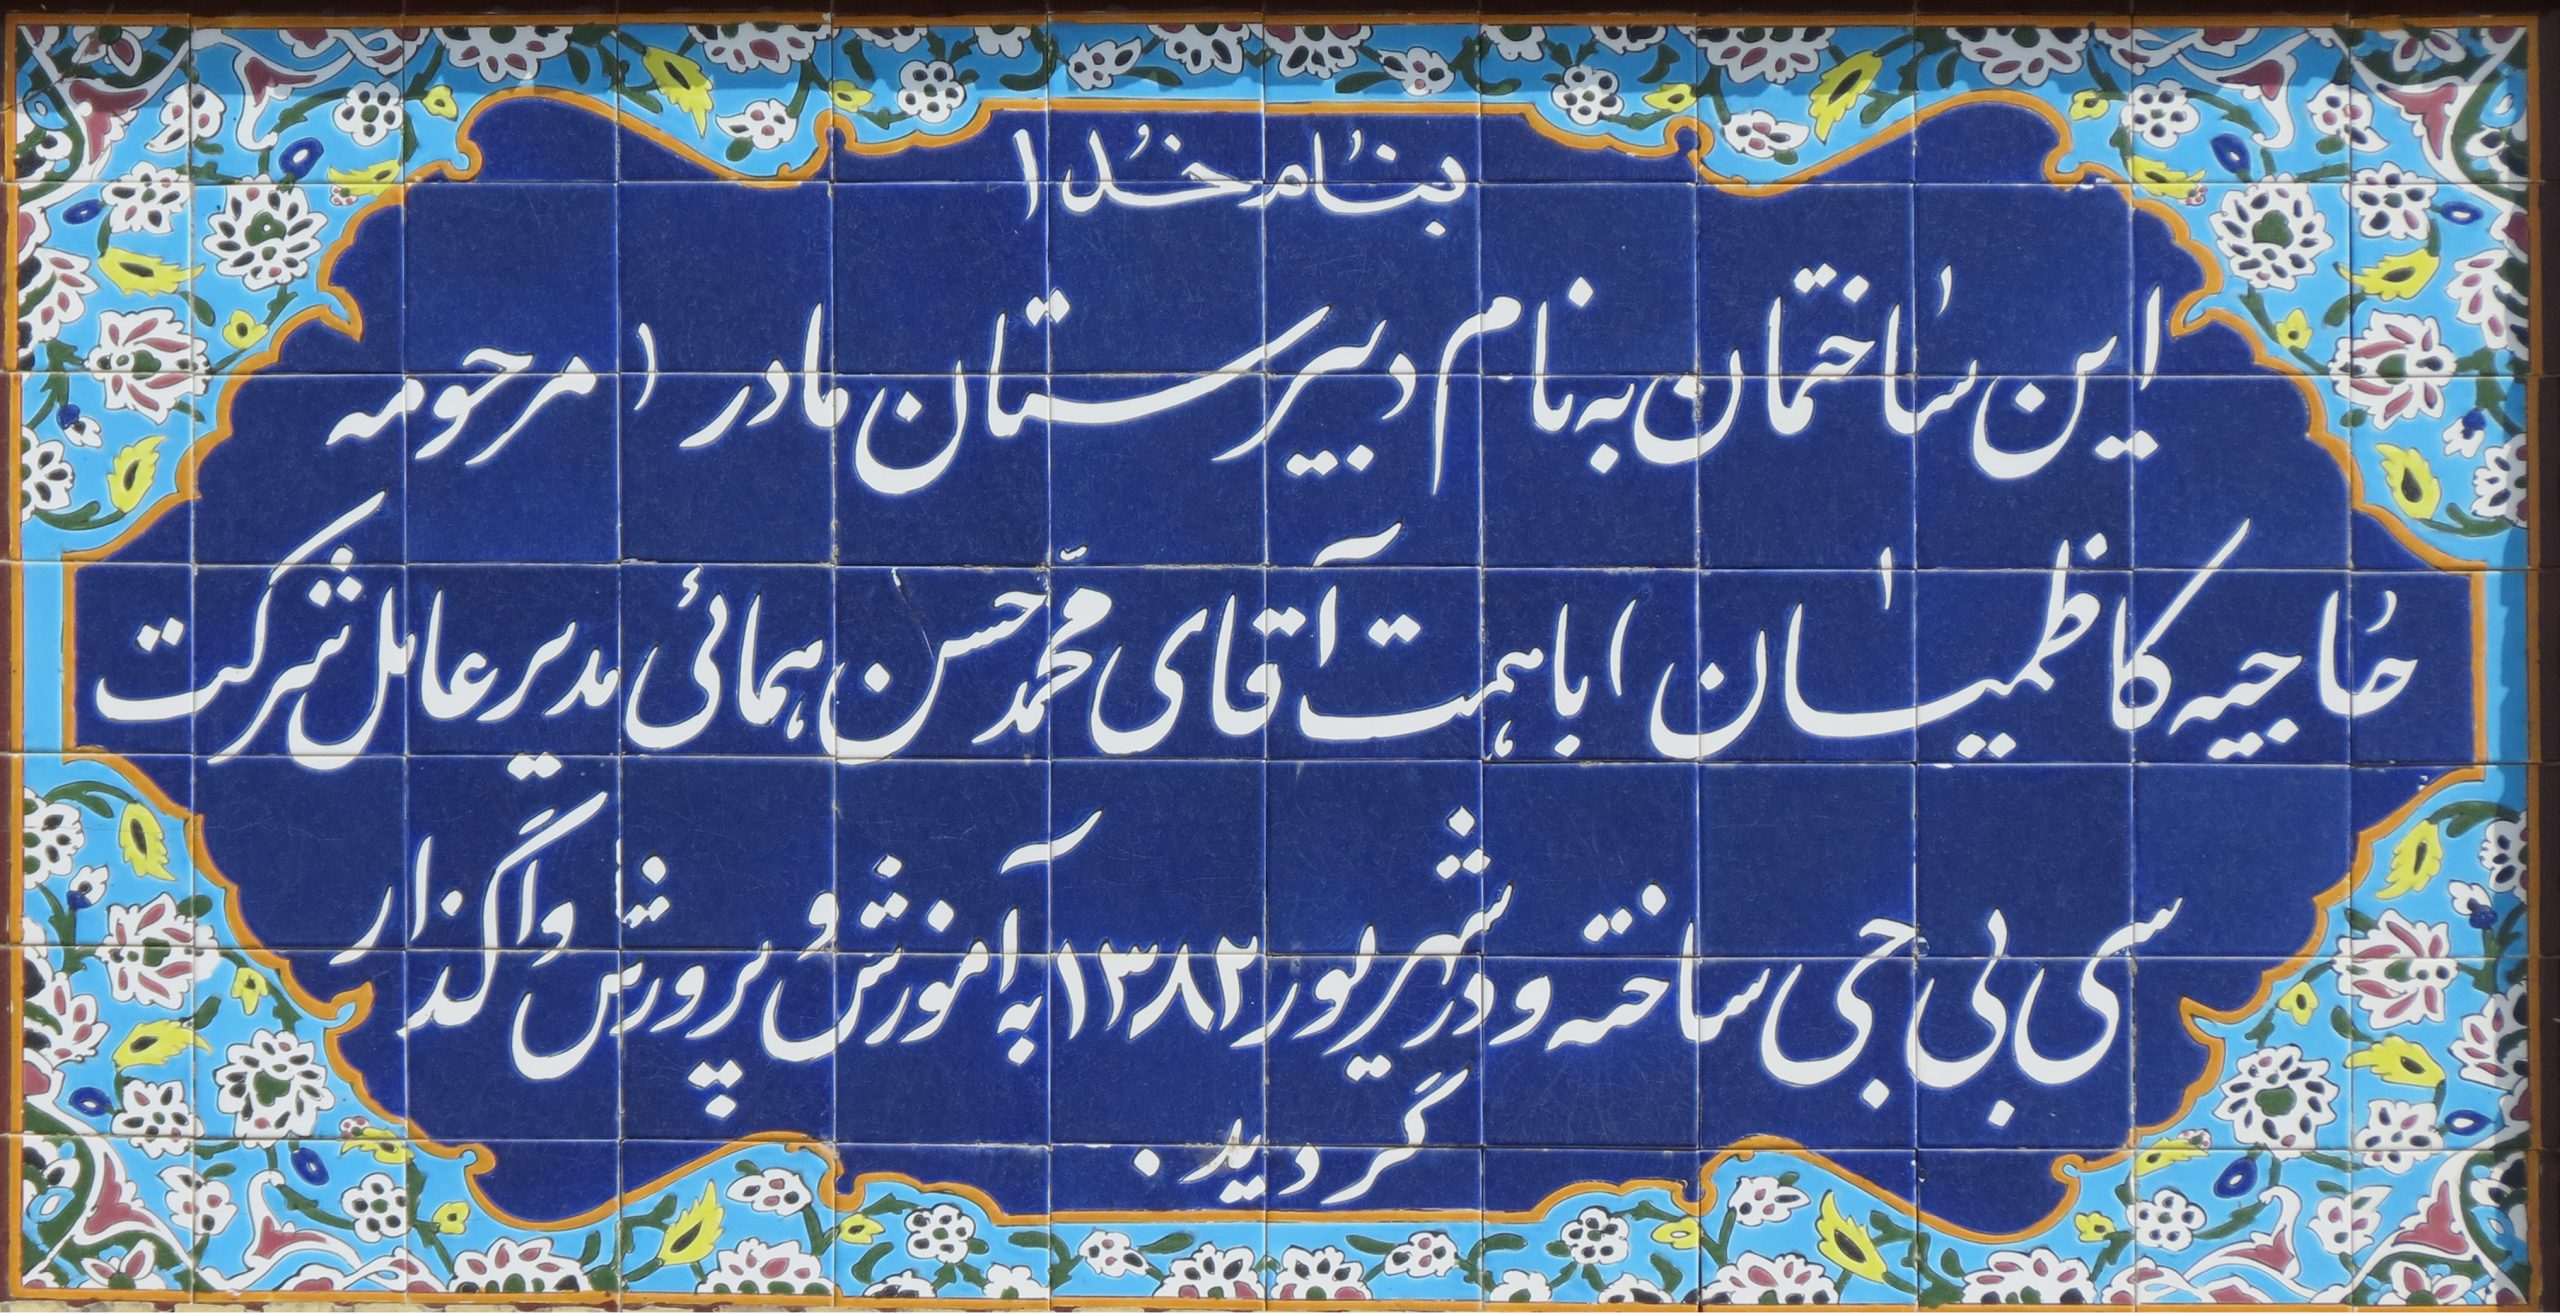 بنام خدا
این ساختمان به نام دبیرستان مادر (مرحومه
حاجیه کاظمیان) با همت آقای محمّد حسن همائی مدیر عامل شرکت
سی بی جی ساخته و در شهریور ۱۳۸۲ به آموزش و پرورش واگذار
گردید.